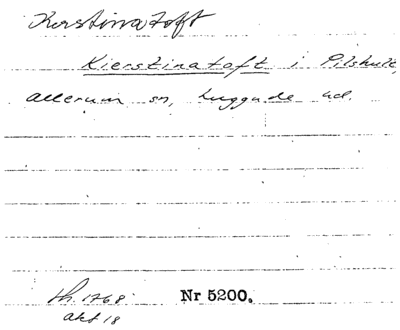 Kerstinatoft
Kierstinatoft i Pilshult,
allerum sn, Luggude hd.
Lh. 1768 Nr 5200.
akt 18